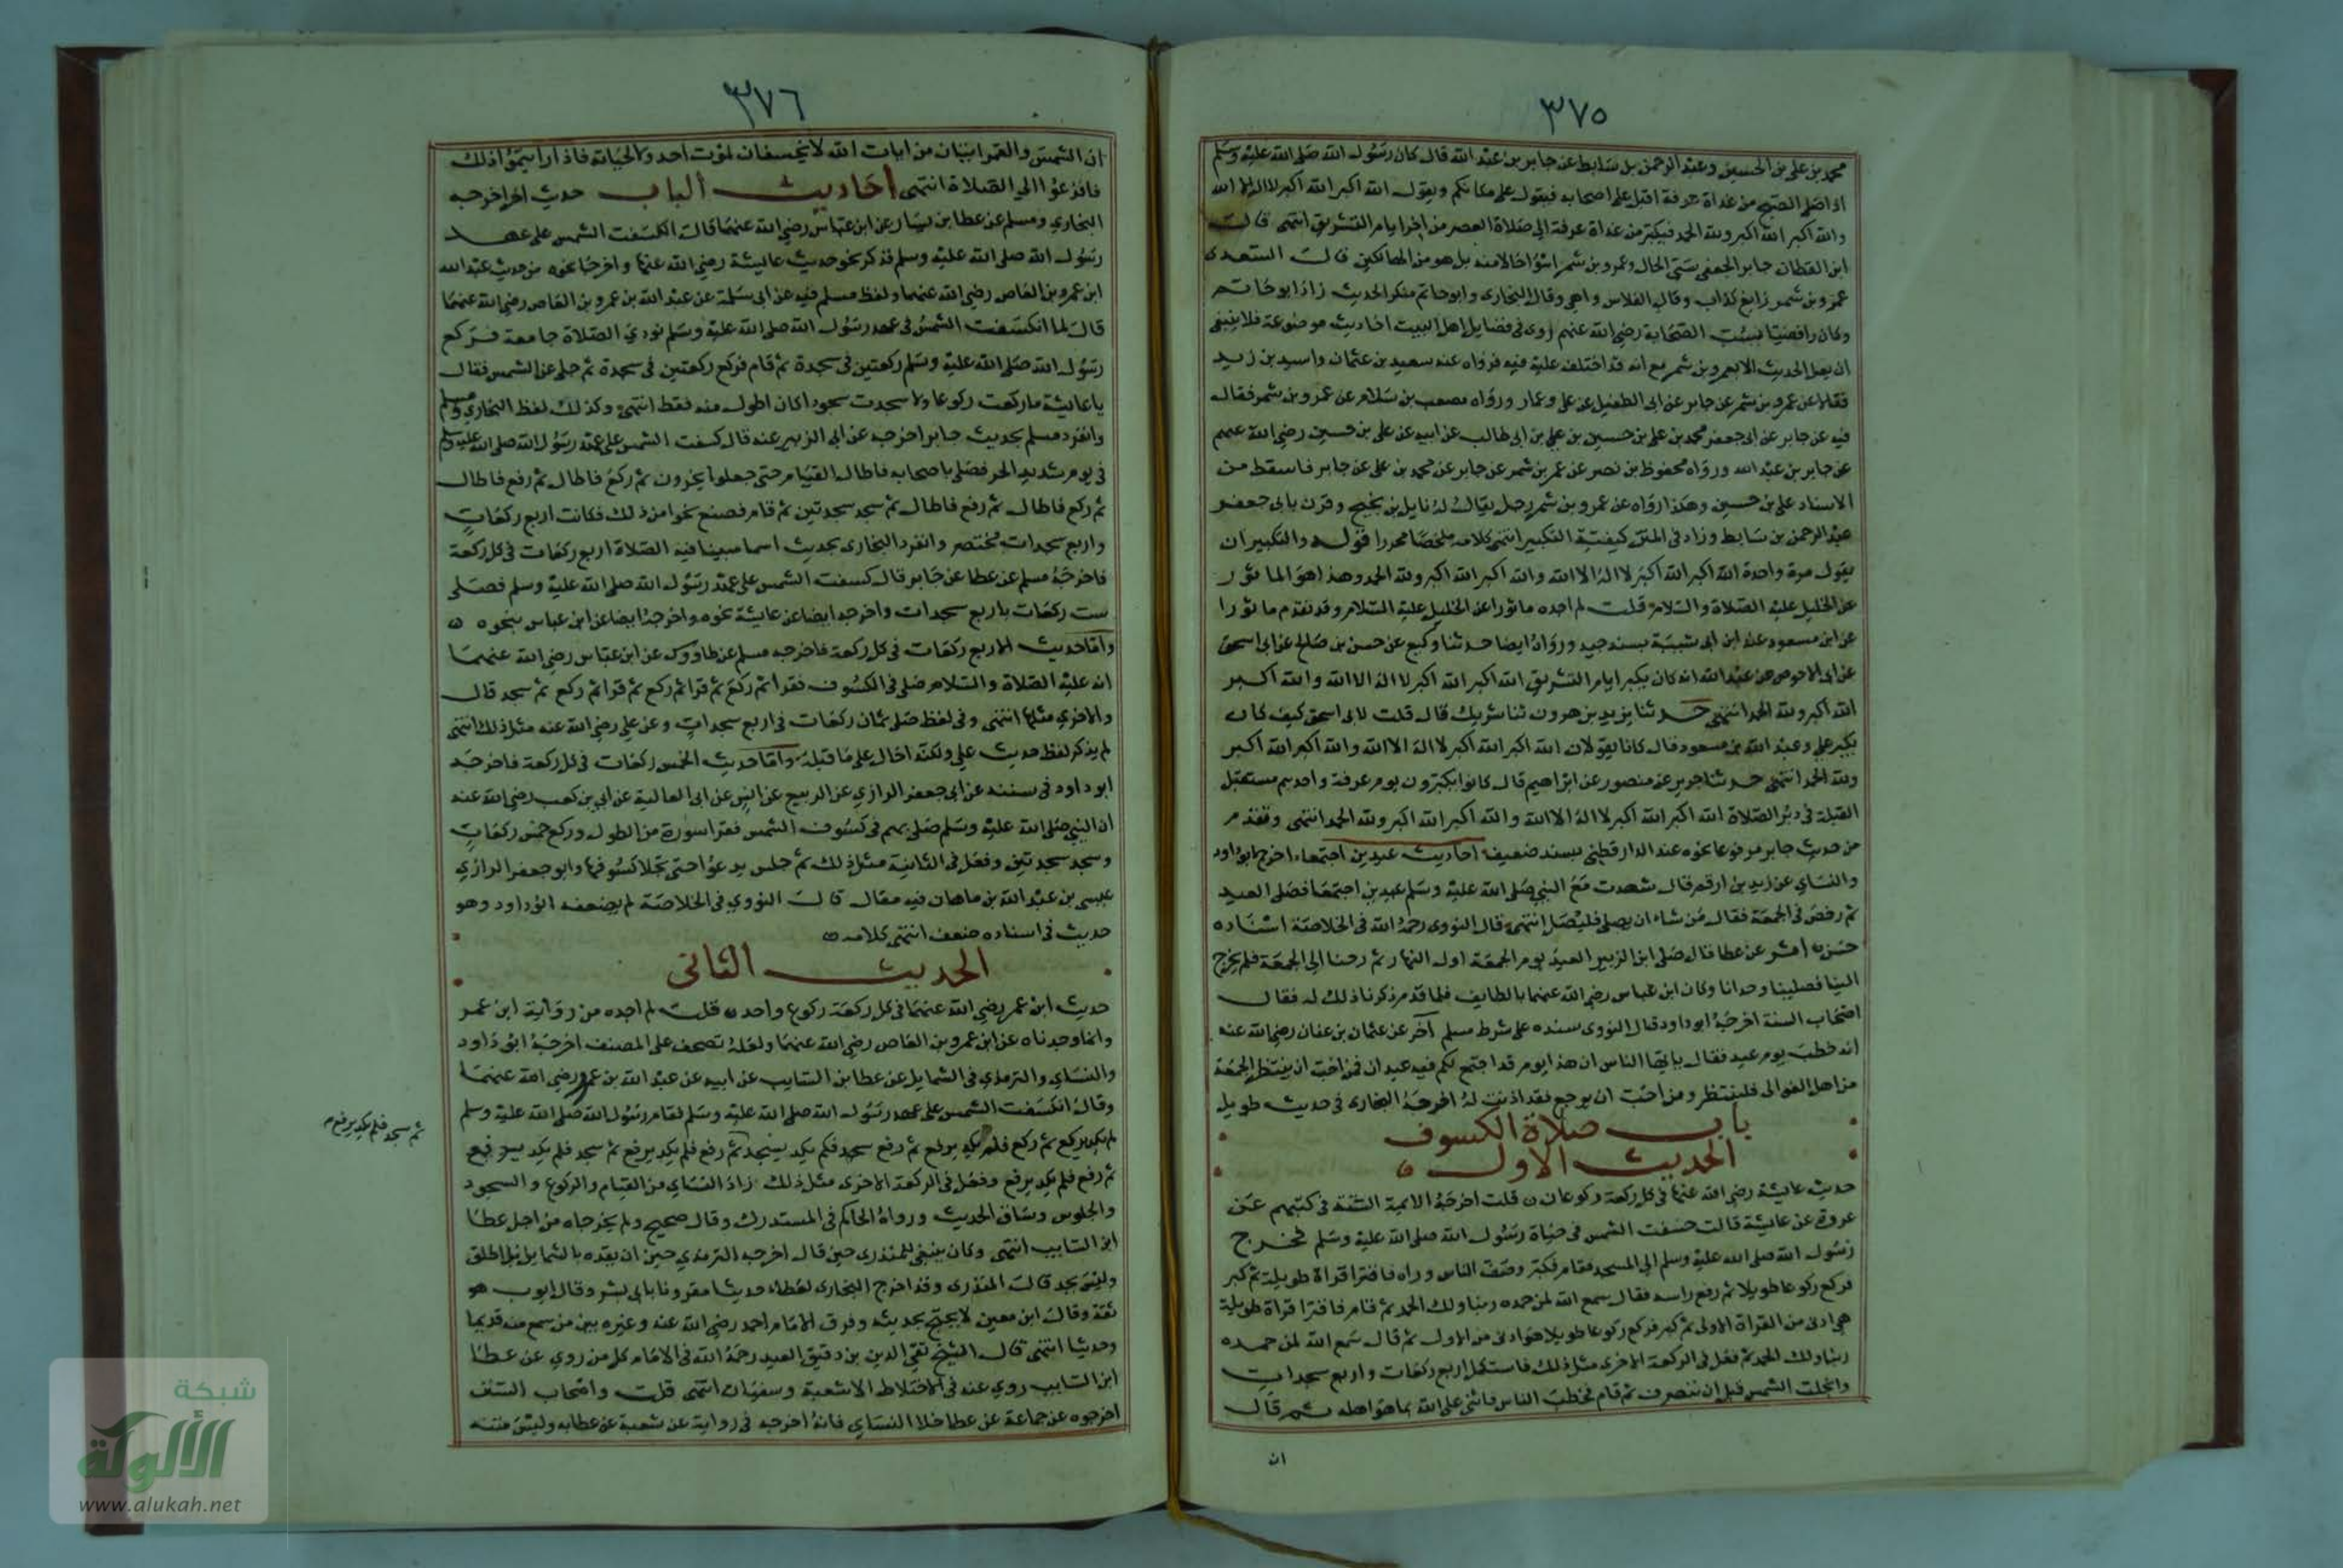 ٣٧٥
محمد بن علي بن الحسين وعبد الرحمن بن سابط عن جابر بن عبد الله قال كان رسول الله صلى الله عليه وسلم
اذا صلى الصبح من غداة عرفة اقبل على اصحابه فيقول على مكانكم ويقول الله اكبر الله اكبر لا اله الا الله
والله اكبر الله اكبر ولله الحمد فيكبر من غداة عرفة الى صلاة العصر من اخر ايام التشريق انتهى قال
ابن القطان جابر الجعفي سيئ الحال وعمرو بن شمر اسوا حالا منه بل هو من الهالكين قال السعدي
عمرو بن شمر زايغ كذاب وقال الفلاس واهي وقال البخاري وابو حاتم منكر الحديث زاد ابو حاتم
وكان رافضيا يسب الصحابة رضي الله عنهم روى في فضايل اهل البيت احاديث موضوعة فلا ينبغي
ان يعل الحديث الا بعمرو بن شمر مع انه قد اختلف عليه فيه فرواه عنه سعيد بن عثمان واسيد بن زيد
فقالا عن عمرو بن شمر عن جابر عن ابي الطفيل عن علي وعمار ورواه مصعب بن سلام عن عمرو بن شمر فقال
فيه عن جابر عن ابي جعفر محمد بن علي بن حسين بن علي بن ابي طالب عن ابيه عن علي بن حسين رضي الله عنهم
عن جابر بن عبد الله ورواه محفوظ بن نصر عن عمر بن شمر عن جابر عن محمد بن علي عن جابر فاسقط من
الاسناد علي بن حسين وهكذا رواه عن عمرو بن شمر رجل يقال له نايل بن نجيح وقرن بابي جعفر
عبد الرحمن بن سابط وزاد في المتن كيفية التكبير انتهى كلامه ملخصا محررا قوله والتكبير ان
يقول مرة واحدة الله اكبر الله اكبر لا اله الا الله والله اكبر الله اكبر ولله الحمد وهذا هو الماثور
عن الخليل عليه الصلاة والسلام قلت لم اجده ماثورا عن الخليل عليه السلام وقد تقدم ماثورا
عن ابن مسعود عند ابن ابي شيبة بسند جيد ورواه ايضا حدثنا وكيع عن حسن بن صالح عن ابي اسحق
عن ابي الاحوص عن عبد الله انه كان يكبر ايام التشريق الله اكبر الله اكبر لا اله الا الله والله اكبر
الله اكبر ولله الحمد انتهى حدثنا يزيد بن هرون ثنا شريك قال قلت لابي اسحق كيف كان
يكبر علي وعبد الله بن مسعود قال كانا يقولان الله اكبر الله اكبر لا اله الا الله والله اكبر الله اكبر
ولله الحمد انتهى حدثنا جرير عن منصور عن ابراهيم قال كانوا يكبرون يوم عرفة واحدهم مستقبل
القبلة في دبر الصلاة الله اكبر الله اكبر لا اله الا الله والله اكبر الله اكبر ولله الحمد انتهى وتقدم
من حديث جابر مرفوعا نحوه عند الدارقطني بسند ضعيف احاديث عيدين اجتمعا اخرج ابو داود
والنساي عن زيد بن ارقم قال شهدت مع النبي صلى الله عليه وسلم عيدين اجتمعا فصلى العيد
ثم رخص في الجمعة فقال من شاء ان يصلي فليصل انتهى قال النووي رحمه الله في الخلاصة اسناده
حسن اثر عن عطا قال صلى ابن الزبير العيد يوم الجمعة اول النهار ثم رحنا الى الجمعة فلم يخرج
الينا فصلينا وحدانا وكان ابن عباس رضي الله عنهما بالطايف فلما قدم ذكرنا ذلك له فقال
اصاب السنة اخرجه ابو داود قال النووي سنده على شرط مسلم آخر عن عثمان بن عفان رضي الله عنه
انه خطب يوم عيد فقال يا ايها الناس ان هذا يوم قد اجتمع لكم فيه عيدان فمن احب ان ينتظر الجمعة
من اهل العوالي فلينتظر ومن احب ان يرجع فقد اذنت له اخرجه البخاري في حديث طويل
باب صلاة الكسوف
الحديث الاول
حديث عايشة رضي الله عنها في كل ركعة ركوعان قلت اخرجه الايمة الستة في كتبهم عن
عروة عن عايشة قالت خسفت الشمس في حياة رسول الله صلى الله عليه وسلم فخرج
رسول الله صلى الله عليه وسلم الى المسجد فقام فكبر وصف الناس وراه فاقترا قراة طويلة ثم كبر
فركع ركوعا طويلا ثم رفع راسه فقال سمع الله لمن حمده ربنا ولك الحمد ثم قام فاقترا قراة طويلة
هي ادنى من القراة الاولى ثم كبر فركع ركوعا طويلا هو ادنى من الاول ثم قال سمع الله لمن حمده
ربنا ولك الحمد ثم فعل في الركعة الاخرى مثل ذلك فاستكمل اربع ركعات واربع سجدات
وانجلت الشمس قبل ان ينصرف ثم قام فخطب الناس فاثنى على الله بما هو اهله ثم قال
ان
٣٧٦
ان الشمس والقمر ايتان من ايات الله لا يخسفان لموت احد ولا لحياته فاذا رايتموا ذلك
فافزعوا الى الصلاة انتهى احاديث الباب حديث اخر اخرجه
البخاري ومسلم عن عطا بن يسار عن ابن عباس رضي الله عنهما قال انكسفت الشمس على عهد
رسول الله صلى الله عليه وسلم فذكر نحو حديث عايشة رضي الله عنها واخرجا نحوه من حديث عبد الله
ابن عمرو بن العاص رضي الله عنهما ولفظ مسلم فيه عن ابي سلمة عن عبد الله بن عمرو بن العاص رضي الله عنهما
قال لما انكسفت الشمس في عهد رسول الله صلى الله عليه وسلم نودي الصلاة جامعة فركع
رسول الله صلى الله عليه وسلم ركعتين في سجدة ثم قام فركع ركعتين في سجدة ثم جلي عن الشمس فقال
يا عايشة ما ركعت ركوعا ولا سجدت سجودا كان اطول منه فقط انتهى وكذلك لفظ البخاري ومسلم
وانفرد مسلم بحديث جابر اخرجه عن ابي الزبير عنه قال كسفت الشمس على عهد رسول الله صلى الله عليه وسلم
في يوم شديد الحر فصلى باصحابه فاطال القيام حتى جعلوا يخرون ثم ركع فاطال ثم رفع فاطال
ثم ركع فاطال ثم رفع فاطال ثم سجد سجدتين ثم قام فصنع نحوا من ذلك فكانت اربع ركعات
واربع سجدات مختصر وانفرد البخاري بحديث اسما مبينا فيه الصلاة اربع ركعات في كل ركعة
فاخرجه مسلم عن عطا عن جابر قال كسفت الشمس على عهد رسول الله صلى الله عليه وسلم فصلى
ست ركعات باربع سجدات واخرجه ايضا عن عايشة نحوه واخرجه ايضا عن ابن عباس بنحوه
واما حديث الاربع ركعات في كل ركعة فاخرجه مسلم عن طاووس عن ابن عباس رضي الله عنهما
انه عليه الصلاة والسلام صلى في الكسوف فقرا ثم ركع ثم قرا ثم ركع ثم قرا ثم ركع ثم سجد قال
والاخرى مثلها انتهى وفي لفظ صلى ثمان ركعات في اربع سجدات وعن علي رضي الله عنه مثل ذلك انتهى
لم يذكر لفظ حديث علي ولكنه احال على ما قبله واما حديث الخمس ركعات في كل ركعة فاخرجه
ابو داود في سننه عن ابي جعفر الرازي عن الربيع عن انس عن ابي العالية عن ابي بن كعب رضي الله عنه
ان النبي صلى الله عليه وسلم صلى بهم في كسوف الشمس فقرا سورة من الطول وركع خمس ركعات
وسجد سجدتين وفعل في الثانية مثل ذلك ثم جلس يدعوا حتى تجلا كسوفها وابو جعفر الرازي
عيسى بن عبد الله بن ماهان فيه مقال قال النووي في الخلاصة لم يضعفه ابو داود وهو
حديث في اسناده ضعف انتهى كلامه
الحديث الثاني
حديث ابن عمر رضي الله عنهما في كل ركعة ركوع واحد قلت لم اجده من رواية ابن عمر
وانما وجدناه عن ابن عمرو بن العاص رضي الله عنهما ولعله تصحف على المصنف اخرجه ابو داود
والنساي والترمذي في الشمايل عن عطا بن السايب عن ابيه عن عبد الله بن عمرو رضي الله عنهما
وقال انكسفت الشمس على عهد رسول الله صلى الله عليه وسلم فقام رسول الله صلى الله عليه وسلم
لم يكد يركع ثم ركع فلم يكد يرفع ثم رفع سجد فلم يكد يسجد ثم رفع فلم يكد يرفع ثم سجد فلم يكد يرفع
ثم سجد فلم يكد يرفع
ثم رفع فلم يكد يرفع وفعل في الركعة الاخرى مثل ذلك زاد النساي من القيام والركوع والسجود
والجلوس وساق الحديث ورواه الحاكم في المستدرك وقال صحيح ولم يخرجاه من اجل عطا
ابن السايب انتهى وكان ينبغي للمنذري حين قال اخرجه الترمذي حين ان يقيده بالشمايل بل اطلق
وليس بجيد قال المنذري وقد اخرج البخاري لعطاء حديثا مقرونا بابي بشر وقال ايوب هو
ثقة وقال ابن معين لا يحتج بحديثه وفرق الامام احمد رضي الله عنه وغيره بين من سمع منه قديما
وحديثا انتهى قال الشيخ تقي الدين بن دقيق العيد رحمه الله في الامام كل من روى عن عطا
ابن السايب روى عنه في الاختلاط الا شعبة وسفيان انتهى قلت واصحاب السنن
اخرجوه عن جماعة عن عطا خلا النساي فانه اخرجه في رواية عن شعبة عن عطا به وليس متنه
شبكة
الألوكة
www.alukah.net